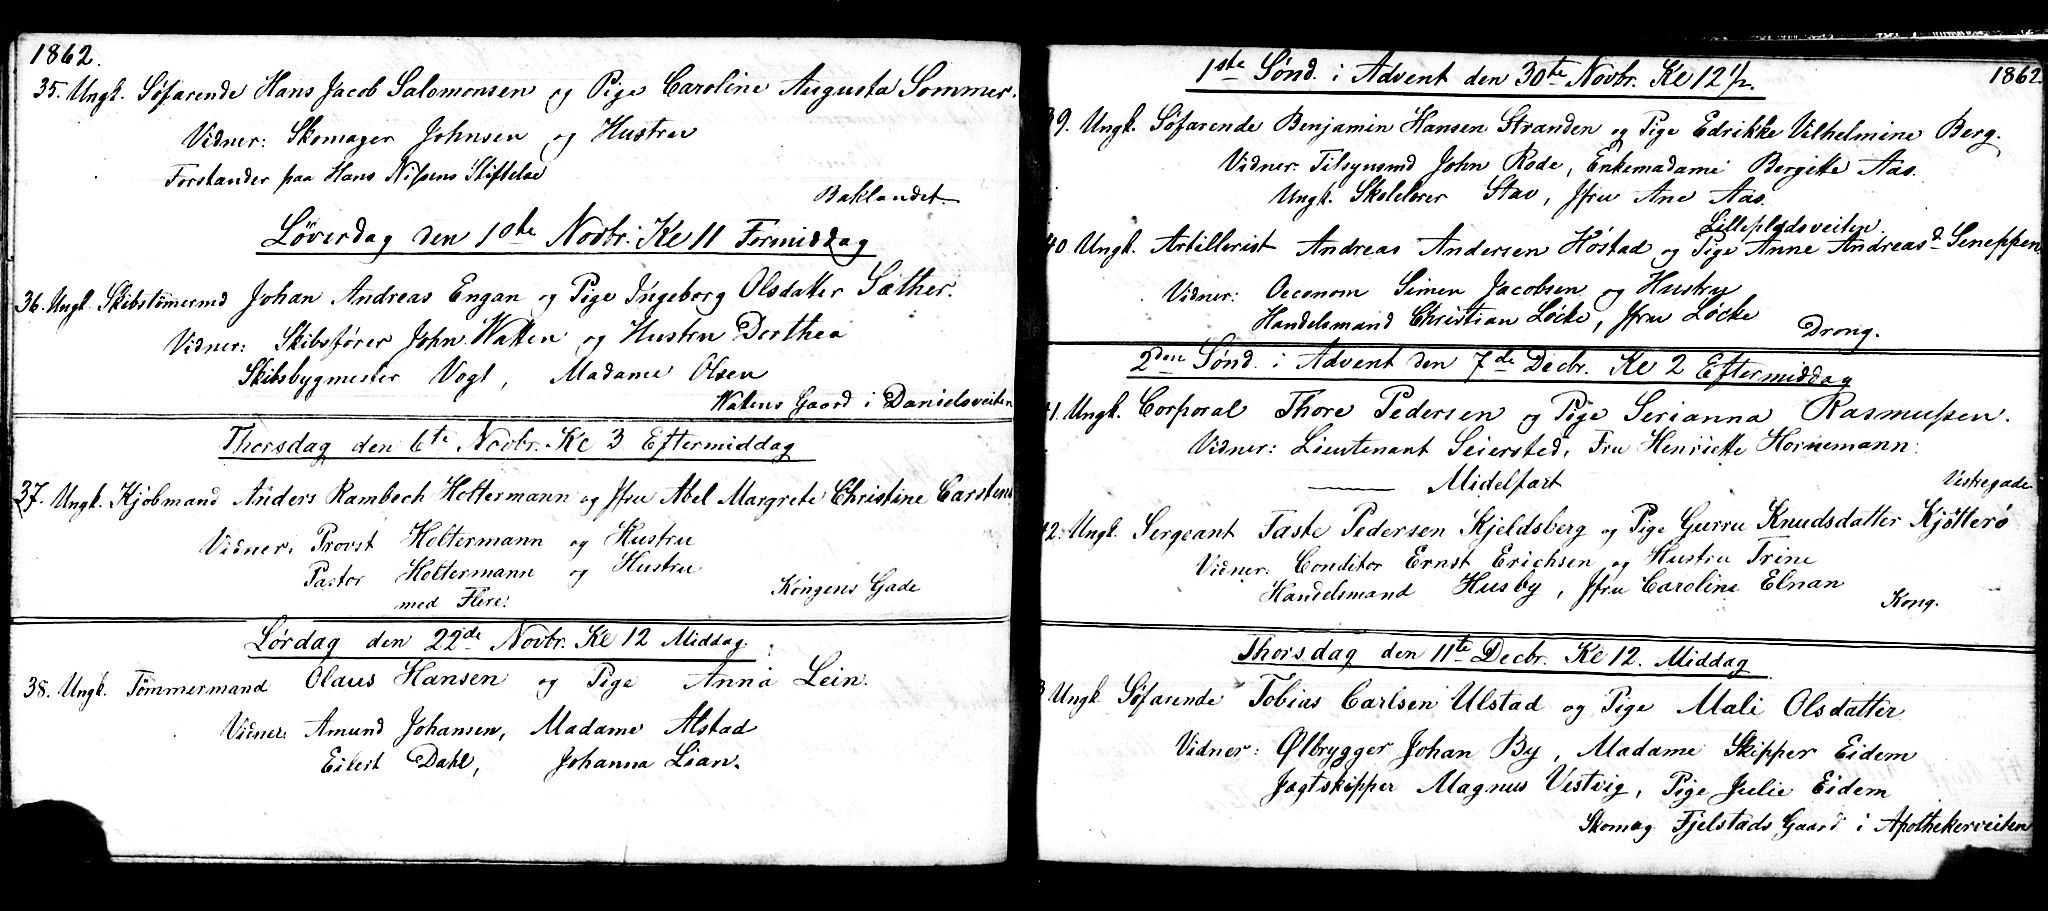 1862.
35. Ungk. Söfarende Hans Jacob Salomonsen og Pige Caroline Augusta Sommer.
Vidner: Skomager Johnsen og Hustru
Forstander paa Hans Nissens Stiftelse
Baklandet.
Löverdag den 10te Novbr. Kl 11 Formiddag
36. Ungk. Skibstömermd Johan Andreas Engan og Pige Ingeborg Olsdatter Sæther.
Vidner: Skibsförer John Watten og Hustru Dorthea
Skibsbygmester Vogt, Madame Olsen
Wattens Gaard i Danielsveiten
Thorsdag den 6te Novbr. Kl 3 Eftermiddag
37. Ungk. Kjöbmand Anders Rambech Holtermann og Jfru Abel Margrete Christine Carstens
Vidner: Provst Holtermann og Hustru
Pastor Holtermann og Hustru
med Flere.
Kongens Gade
Lördag den 22de Novbr. Kl 12 Middag.
38. Ungk. Tömmermand Olaus Hansen og Pige Anna Lein.
Vidner: Amund Johansen, Madame Alstad
Eilert Dahl, Johanna Lian.
1862
1ste Sönd. i Advent den 30te Novbr. Kl 12 1/2.
39. Ungk. Söfarende Benjamin Hansen Stranden og Pige Edrikke Vilhelmine Berg.
Vidner: Tilsynsmd John Rode, Enkemadame Bergitte Aas.
Ungk. Skolelærer Stav, Jfru Ane Aas.
Lilleplodsveiten.
40. Ungk. Artillerist Andreas Andersen Höstad og Pige Anne Andreasd. Seneppen
Vidner: Oeconom Simen Jacobsen og Hustru
Handelsmand Christian Löcke, Jfru Löcke
Drong.
2den Sönd. i Advent den 7de Decbr. Kl 2 Eftermiddag
41. Ungk. Corporal Thore Pedersen og Pige Serianna Rasmussen.
Vidner: Lieutenant Seiersted, Fru Henriette Hornemann.
—— Midelfart
Vestregade
42. Ungk. Sergeant Taste Pedersen Kjeldsberg og Pige Gurru Knudsdatter Kjötterö
Vidner: Conditor Ernst Erichsen og Hustru Trine
Handelsmand Husby, Jfru Caroline Elnan
Kong.
Thorsdag den 11te Decbr. Kl 12. Middag
3 Ungk. Söfarende Tobias Carlsen Ulstad og Pige Mali Olsdatter
Vidner: Ölbrygger Johan By, Madame Skipper Eidem
Jagtskipper Magnus Vestvig, Pige Julie Eidem
Skomag Fjelstads Gaard i Apothekerveiten